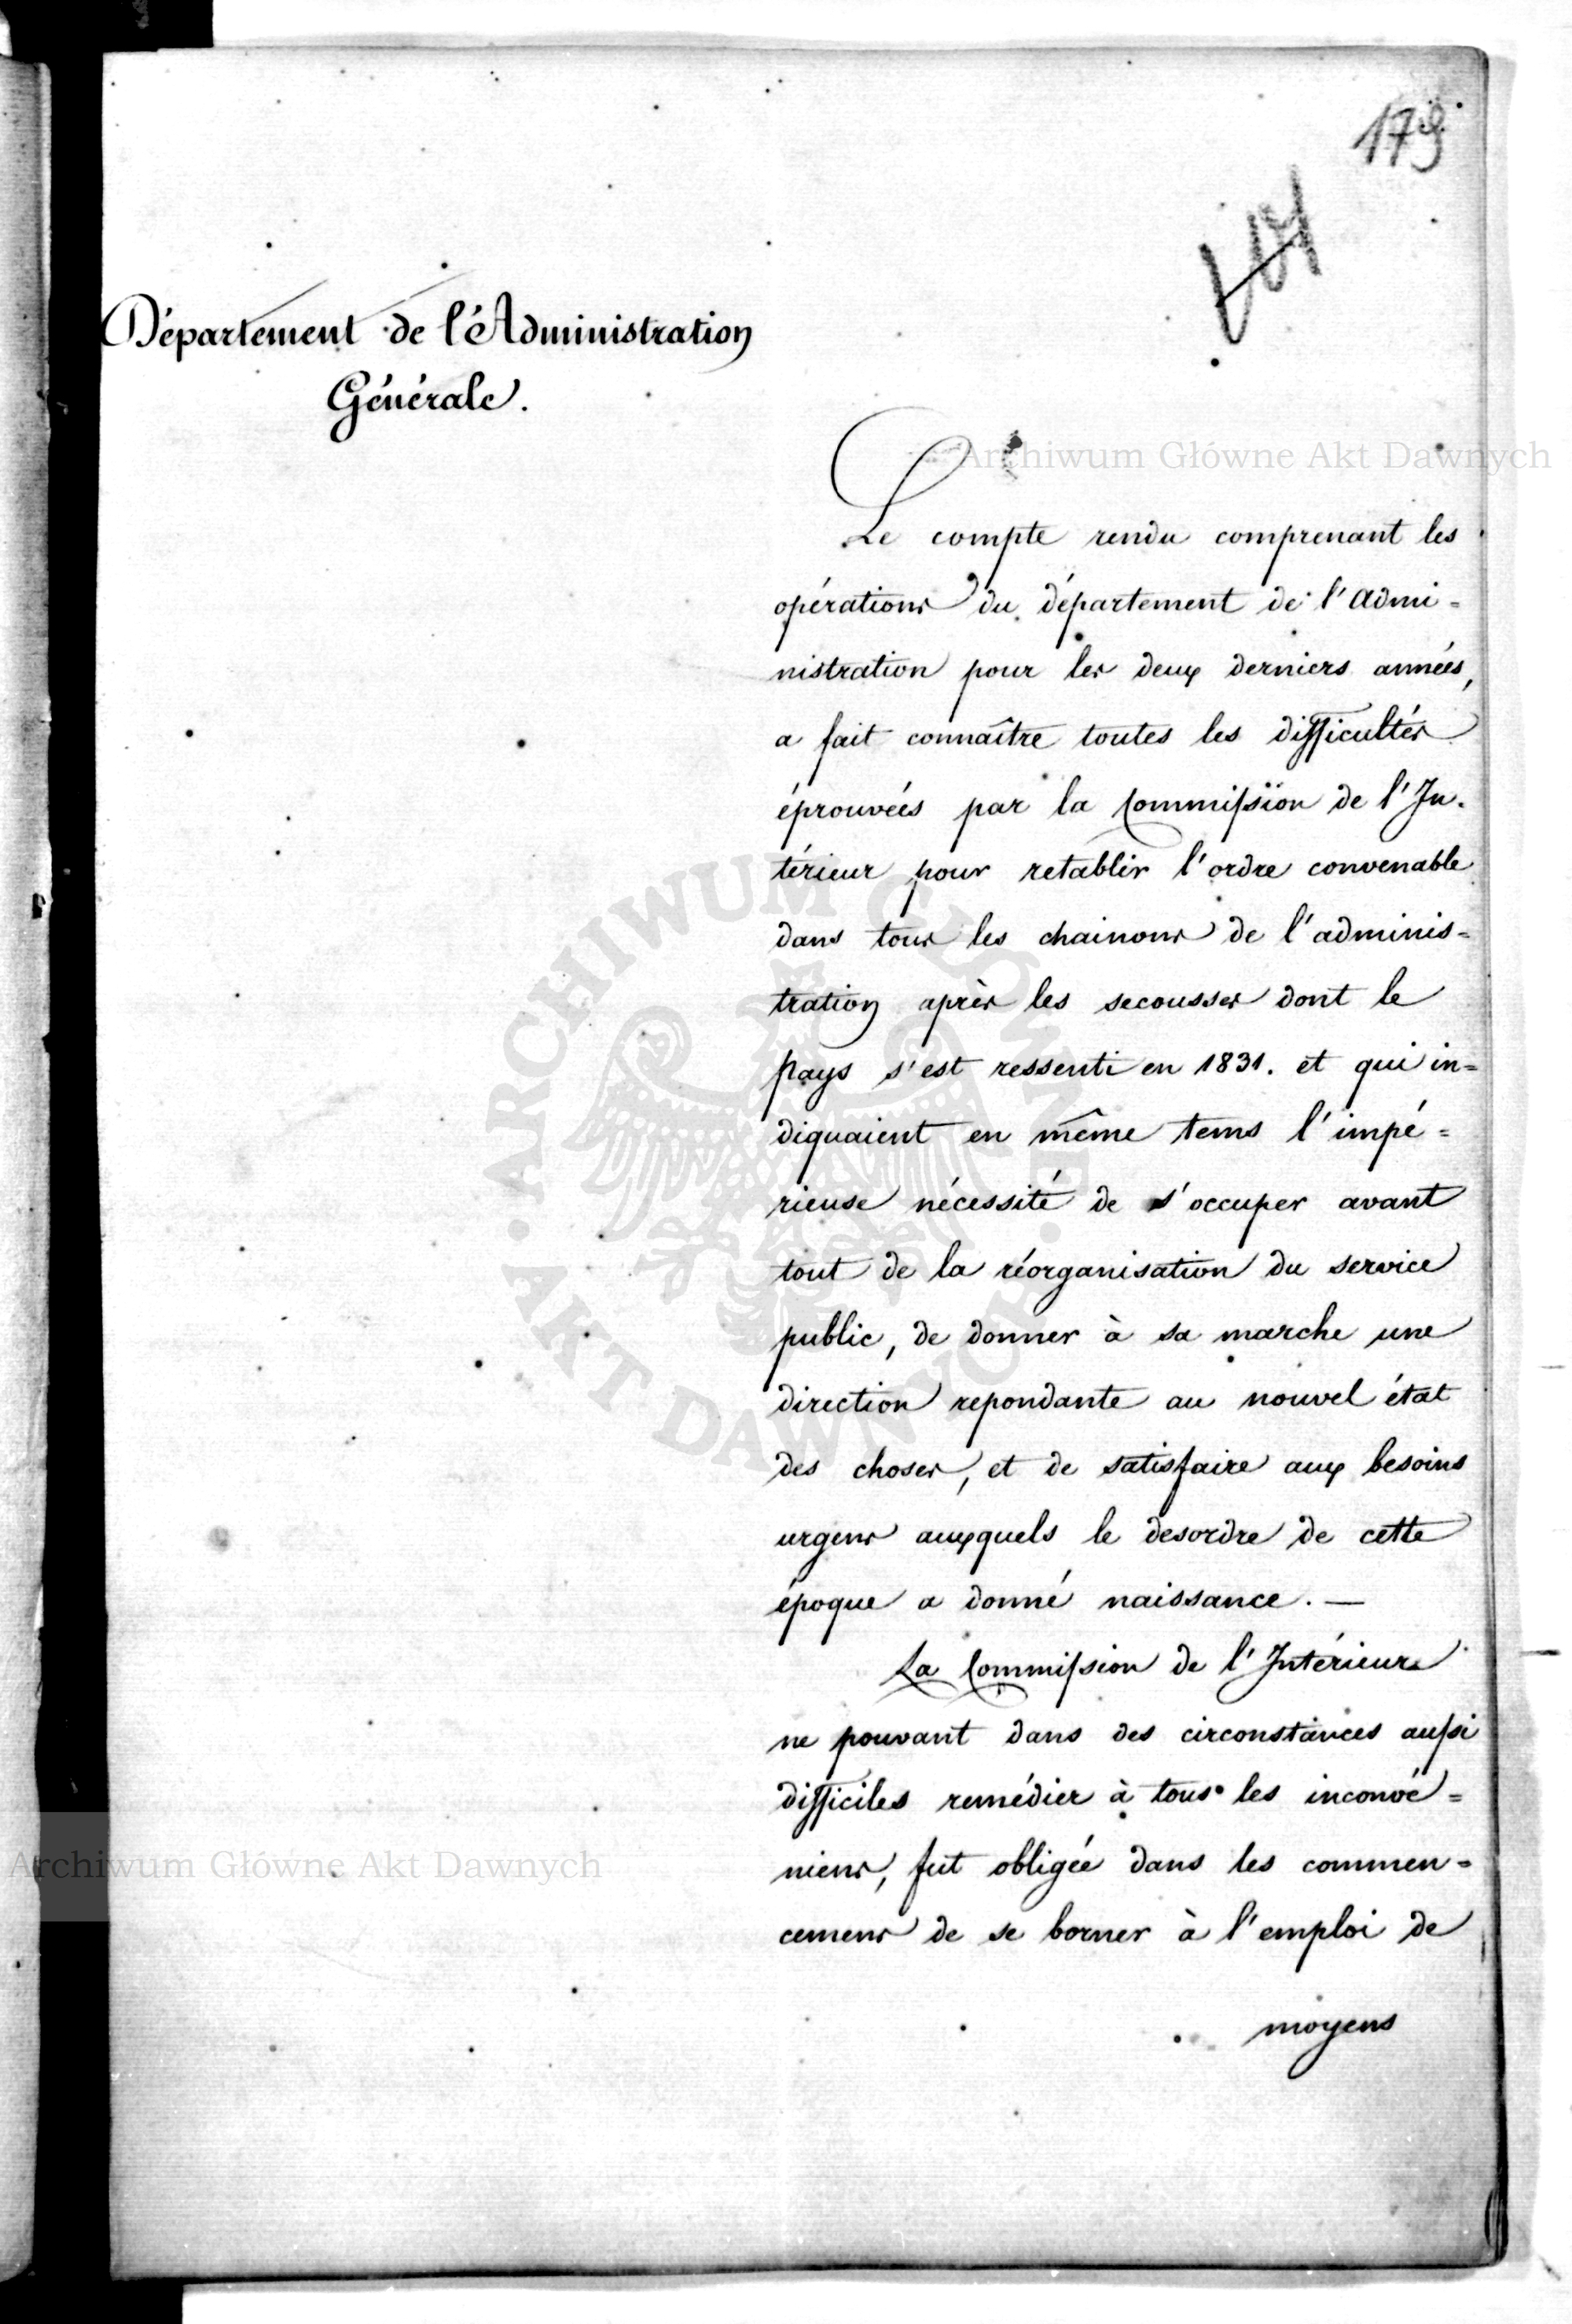 179
Département de l'Administration
Générale.
Archiwum Główne Akt Dawnych
Le compte rendu comprenant les
opérations du département de l'Admi=
nistration pour les deux derniers années,
a fait connaître toutes les difficultés
éprouvées par la Commission de l'In=
térieur pour retablir l'ordre convenable
dans tous les chainons de l'adminis=
tration après les secousses dont le
pays s'est ressenti en 1831. et qui in=
diquaient en même tems l'impé=
rieuse nécessité de s'occuper avant
tout de la réorganisation du service
public, de donner à sa marche une
direction repondante au nouvel état
des choses, et de satisfaire aux besoins
urgens auxquels le desordre de cette
époque a donné naissance. —
La Commission de l'Intérieur
ne pouvant dans des circonstances aussi
difficiles remédier à tous les inconvé=
niens, fut obligée dans les commen=
cemens de se borner à l'emploi de
moyens
ARCHIWUM GŁÓWNE · AKT DAWNYCH ·
Archiwum Główne Akt Dawnych